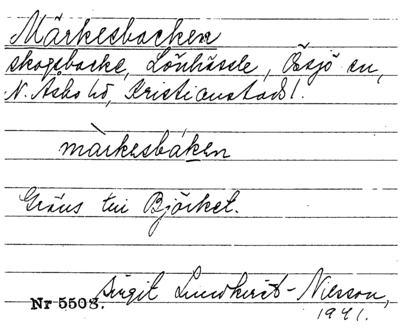 Märkesbacken
skogsbacke, Lönhässle, Össjö sn,
N. Åsbo hd, Kristianstads l.
màrkesbáken
Gräns till Björket.
Birgit Lundkvist-Nilsson,
Nr 5503. 1941.